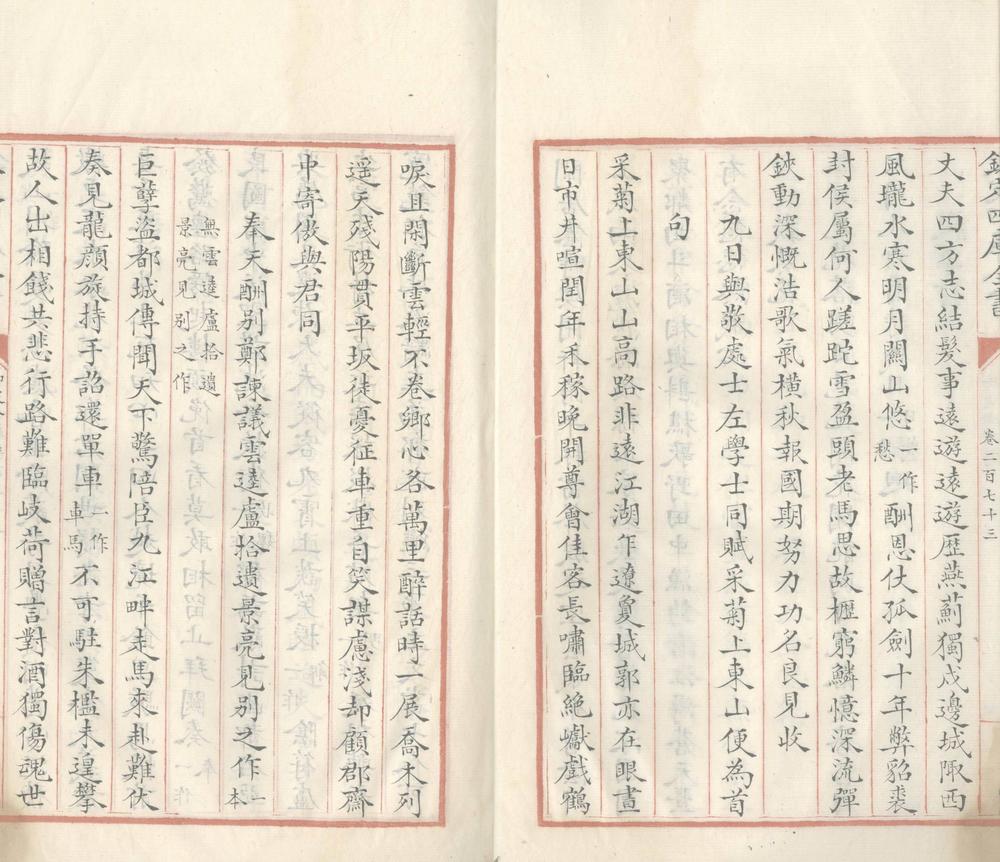 欽定四庫全書
卷二百七十三
丈夫四方志結髮事遠遊遠遊歷燕薊獨戍邊城陬西
風壠水寒明月關山悠一作愁酬恩仗孤劍十年弊貂裘
封侯屬何人蹉跎雪盈頭老馬思故櫪窮鱗憶深流彈
鋏動深慨浩歌氣橫秋報國期努力功名良見收
九日與敬處士左學士同賦采菊上東山便為首
句
采菊上東山山高路非遠江湖乍遼敻城郭亦在眼晝
日市井喧閏年禾稼晚開尊會佳客長嘯臨絶巘戲鶴
唳且閑斷雲輕不卷鄉心各萬里醉話時一展喬木列
遥天殘陽貫平坂徒憂征車重自笑謀慮淺却顧郡齋
中寄傲與君同
奉天酬别鄭諫議雲逵盧拾遺景亮見别之作一本
無雲逵盧拾遺
景亮見别之作
巨孽盜都城傳聞天下驚陪臣九江畔走馬來赴難伏
奏見龍顔旋持手詔還單車一作車馬不可駐朱檻未遑攀
故人出相餞共悲行路難臨岐荷贈言對酒獨傷魂世